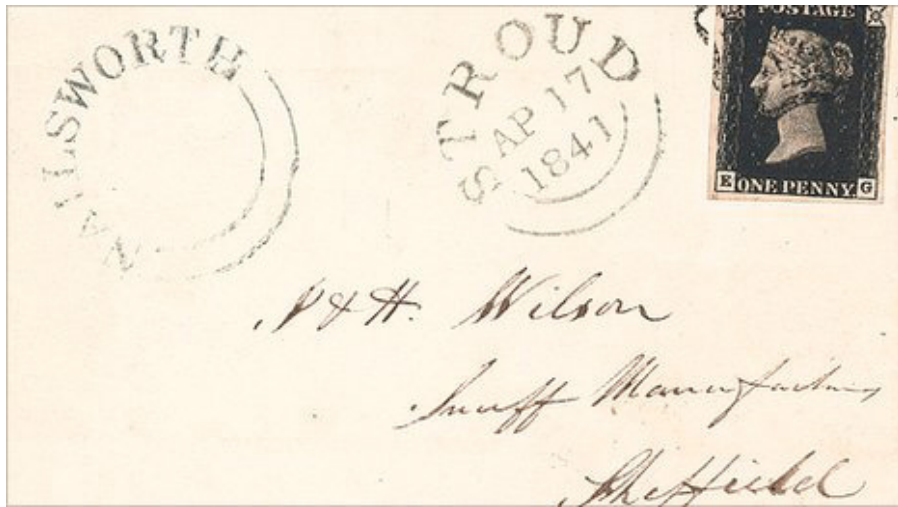 NAILSWORTH
STROUD
AP 17
1841
POSTAGE
E ONE PENNY. G
& H. Wilson
Snuff Manufacturers
Sheffield